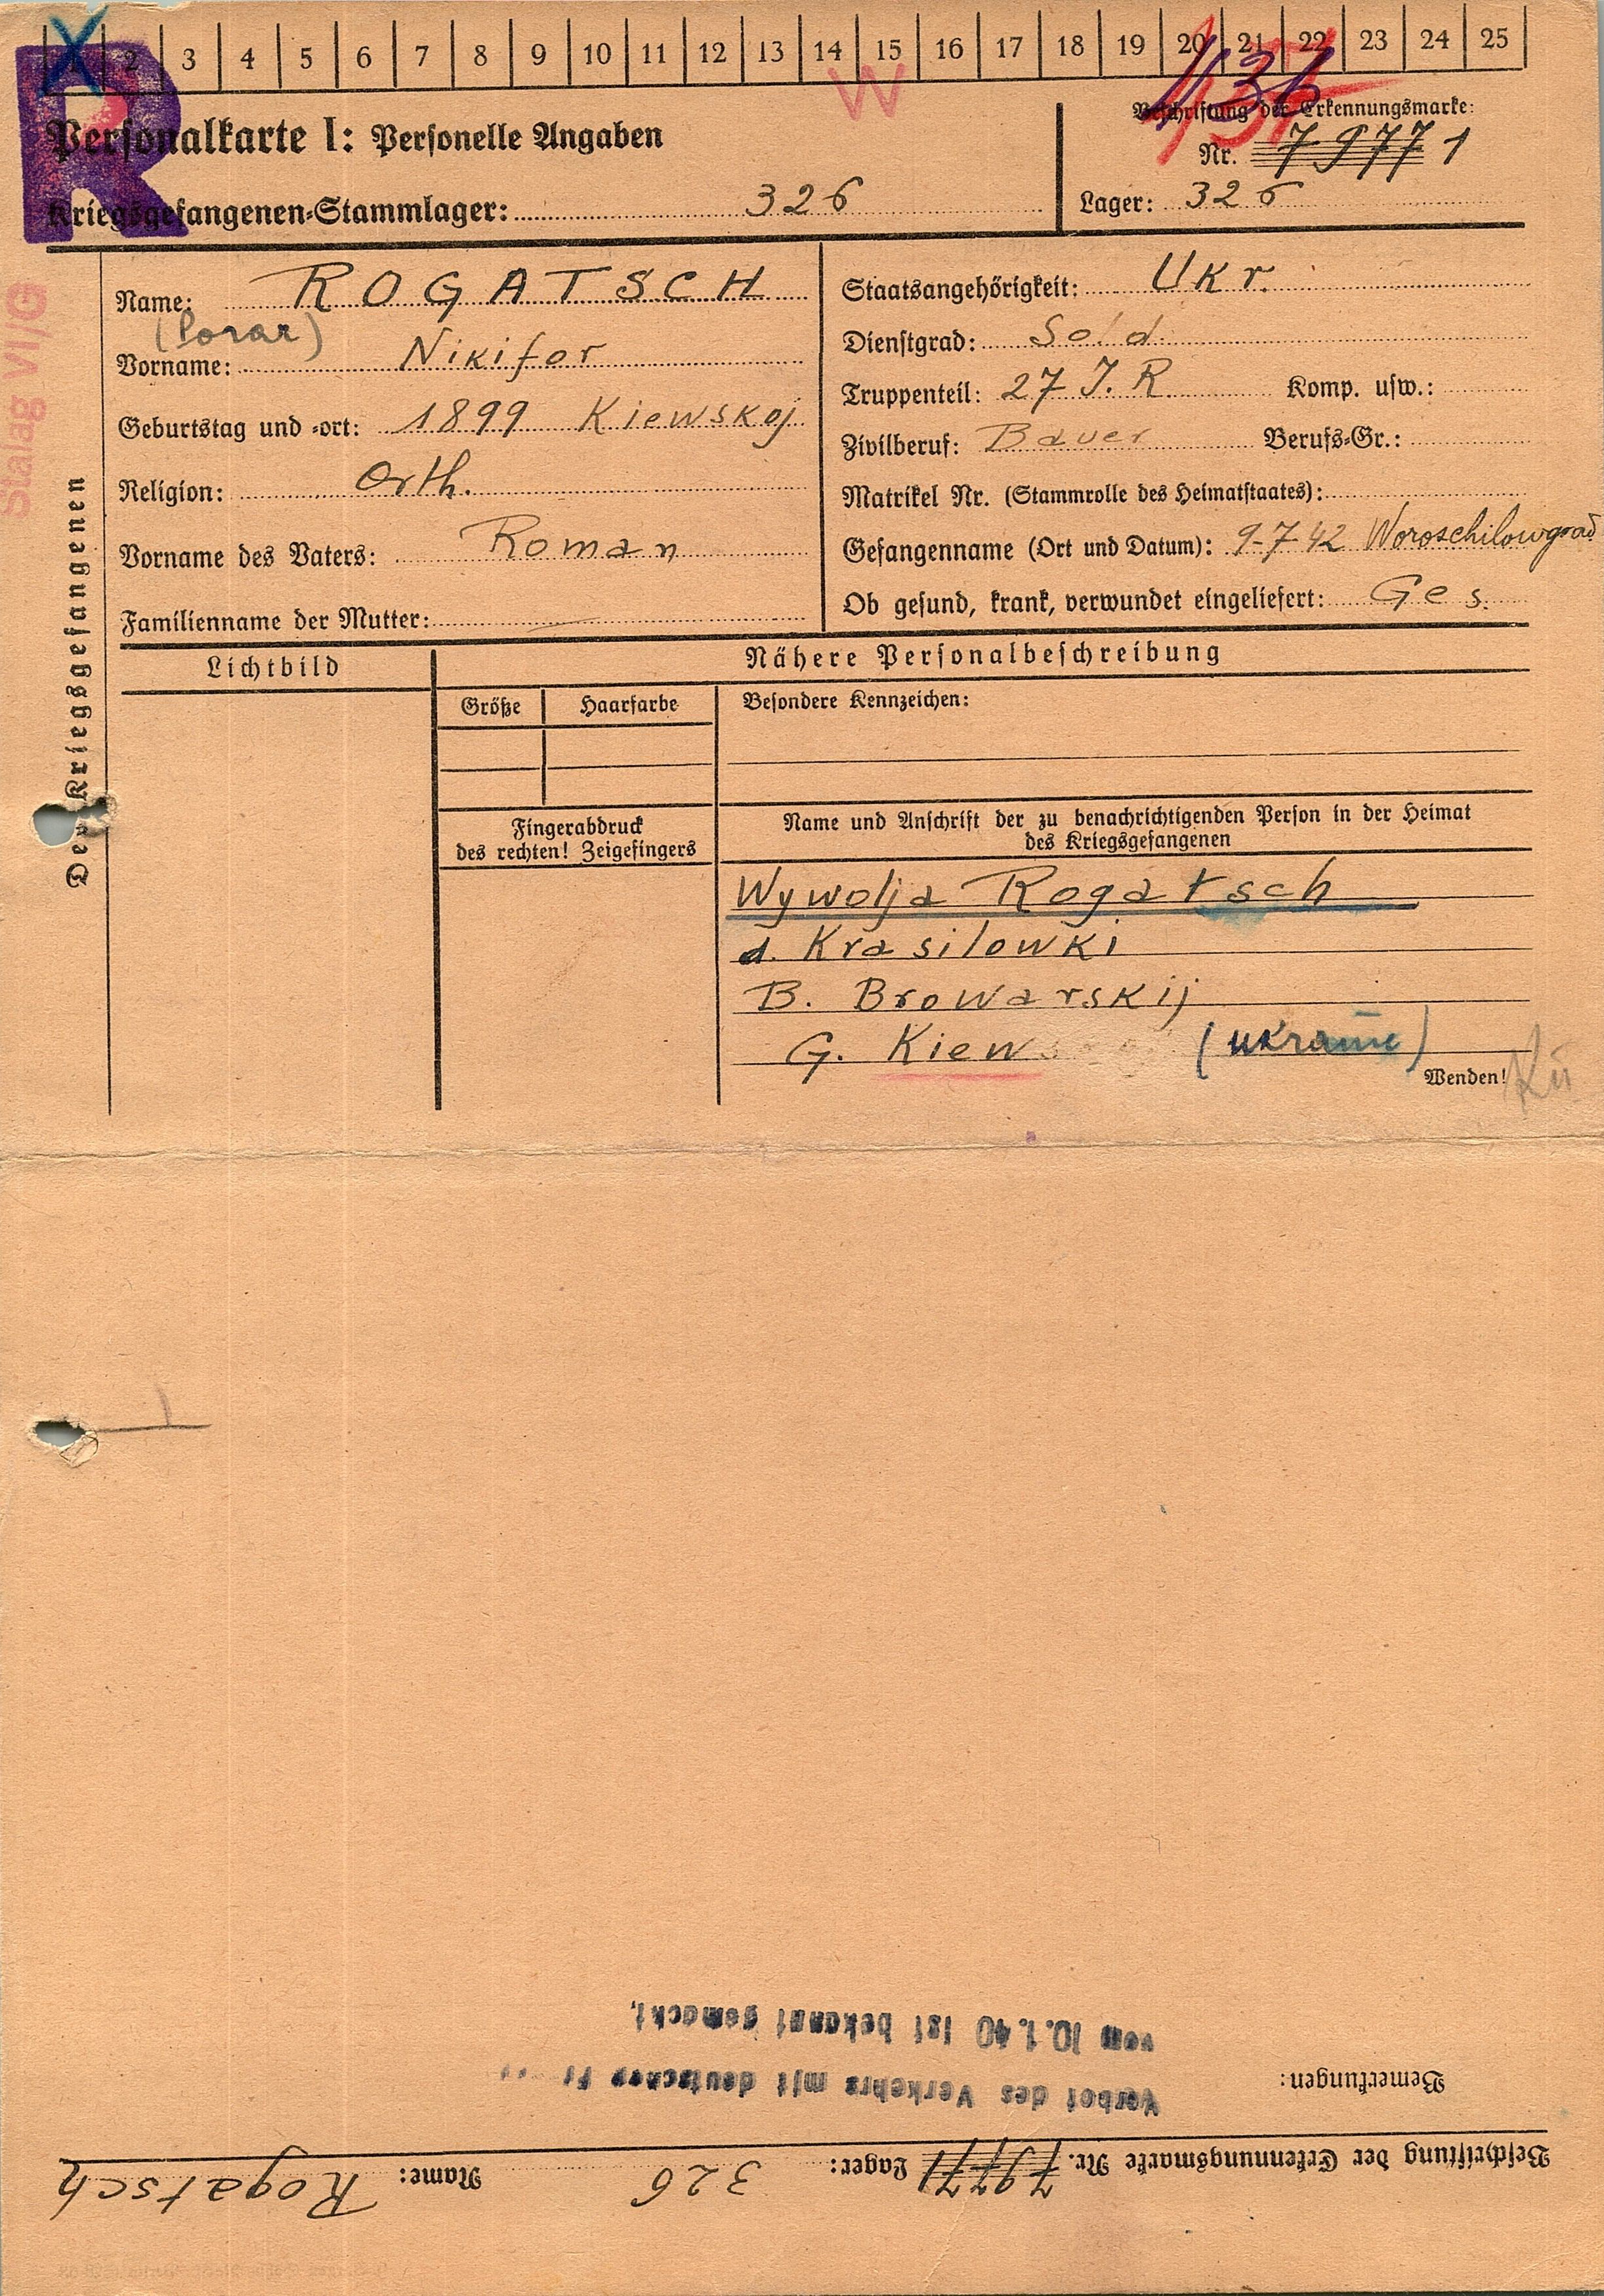 1 2 3 4 5 6 7 8 9 10 11 12 13 14 15 16 17 18 19 20 21 22 23 24 25
R
W
Personalkarte I: Personelle Angaben
Beschriftung der Erkennungsmarke:
Nr. 79771
Kriegsgefangenen-Stammlager: 326
Lager: 326
Stalag VI/G
Des Kriegsgefangenen
Name: ROGATSCH
Vorname: Nikifor
Geburtstag und -ort: 1899 Kiewskoj
Religion: Orth.
Vorname des Vaters: Roman
Familienname der Mutter: —
Staatsangehörigkeit: Ukr.
Dienstgrad: Sold
Truppenteil: 27 J. R. Komp. usw.:
Zivilberuf: Bauer Berufs-Gr.:
Matrikel Nr. (Stammrolle des Heimatstaates):
Gefangenname (Ort und Datum): 9-7-42 Woroschilowgrad
Ob gesund, krank, verwundet eingeliefert: Ges.
Lichtbild
Nähere Personalbeschreibung
Größe Haarfarbe
Besondere Kennzeichen:
Fingerabdruck
des rechten! Zeigefingers
Name und Anschrift der zu benachrichtigenden Person in der Heimat
des Kriegsgefangenen
Wywolja Rogatsch
d. Krasilowki
B. Browarskij
G. Kiew (Ukraine)
Wenden!
Beschriftung der Erkennungsmarke Nr. 79771 Lager: 326 Name: Rogatsch
Bemerkungen:
Verbot des Verkehrs mit deutschen
vom 10.1.40 ist bekannt gemacht.